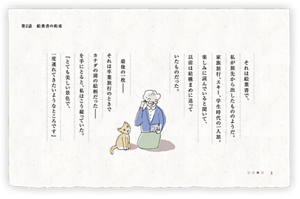 第2話　絵葉書の約束
それは絵葉書で、
私が旅先から出したもののようだ。
家族旅行、スキー、学生時代の一人旅。
楽しみに読んでいると聞いて、
以前は結構まめに送って
いたものだった。
最後の一枚――
それは卒業旅行のときで
カナダの湖の絵柄だった――
を手にとると、私はこう綴っていた。
『とても美しい景色で、
一度連れてきたいようなところです』